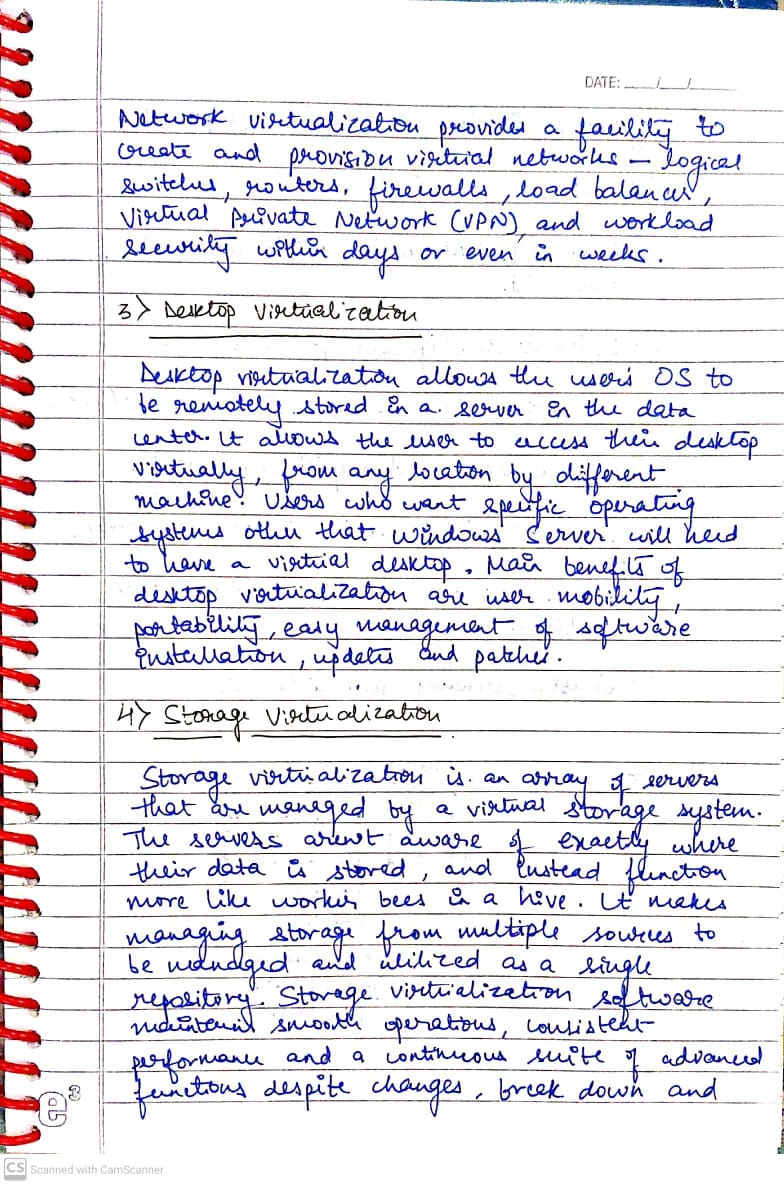 DATE: __/__/____
Network virtualization provides a facility to
create and provision virtual networks — logical
switches, routers, firewalls, load balancer,
Virtual Private Network (VPN), and workload
security within days or even in weeks.
3> Desktop Virtualization
Desktop virtualization allows the users OS to
be remotely stored in a server in the data
center. It allows the user to access their desktop
virtually, from any location by different
machine. Users who want specific operating
systems other that Windows Server will need
to have a virtual desktop. Main benefits of
desktop virtualization are user mobility,
portability, easy management of software
installation, updates and patches.
4> Storage Virtualization
Storage virtualization is an array of servers
that are managed by a virtual storage system.
The servers aren't aware of exactly where
their data is stored, and instead function
more like worker bees in a hive. It makes
managing storage from multiple sources to
be managed and utilized as a single
repository. Storage virtualization software
maintains smooth operations, consistent
performance and a continuous suite of advanced
functions despite changes, break down and
e3
CS Scanned with CamScanner